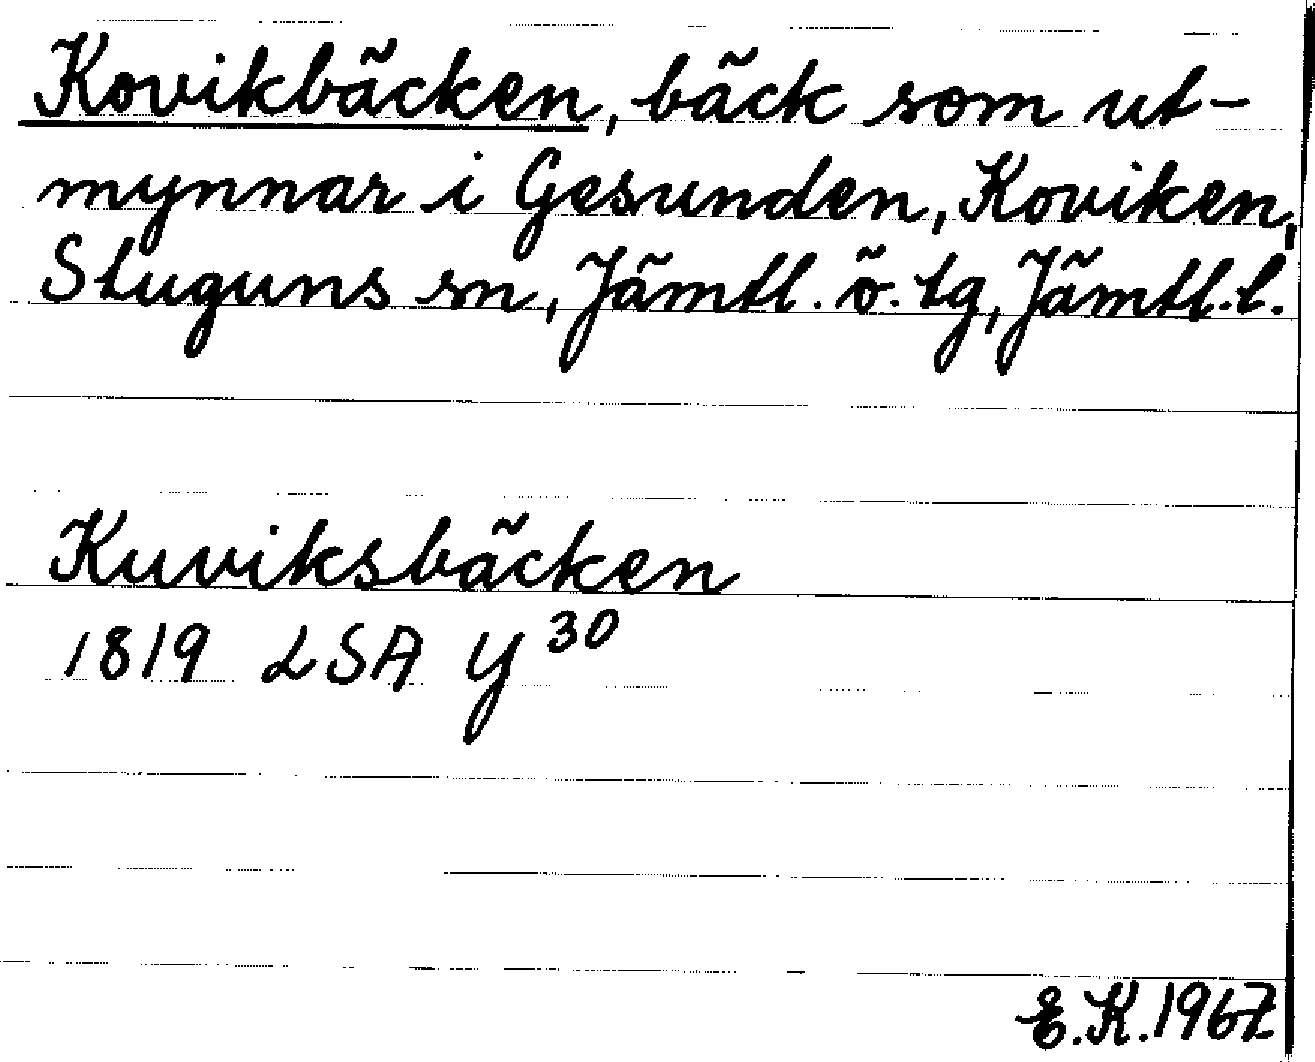 Kovikbäcken, bäck som ut-
mynnar i Gesunden, Koviken,
Stuguns sn, Jämtl. ö. tg, Jämtl. l.
Kuviksbäcken
1819 LSA Y 30
E.K. 1967